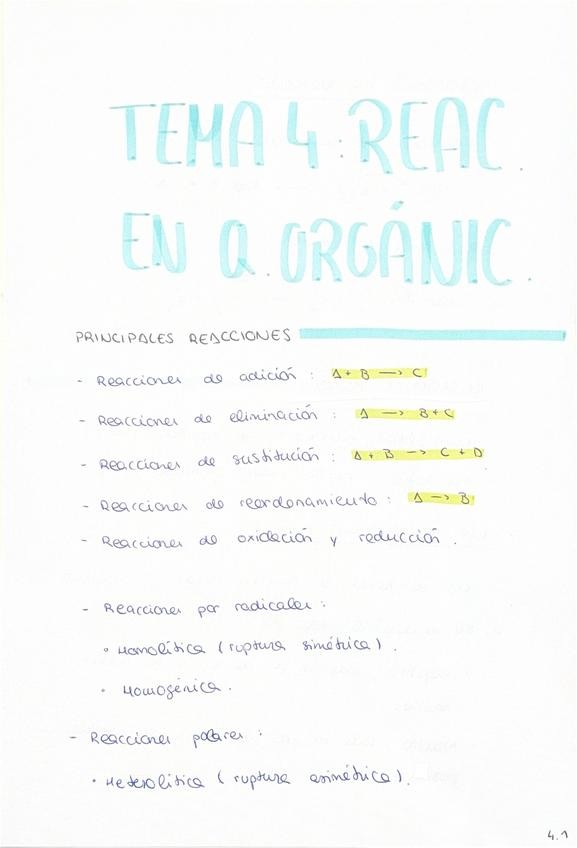 TEMA 4: REAC.
EN Q. ORGÁNIC.
PRINCIPALES REACCIONES
- Reacciones de adición : A + B → C
- Reacciones de eliminación : A → B + C
- Reacciones de sustitución : A + B → C + D
- Reacciones de reordenamiento : A → B
- Reacciones de oxidación y reducción .
- Reacciones por radicales :
• Homolítica ( ruptura simétrica ) .
• Homogénica .
- Reacciones polares :
• Heterolítica ( ruptura asimétrica ) .
4.1